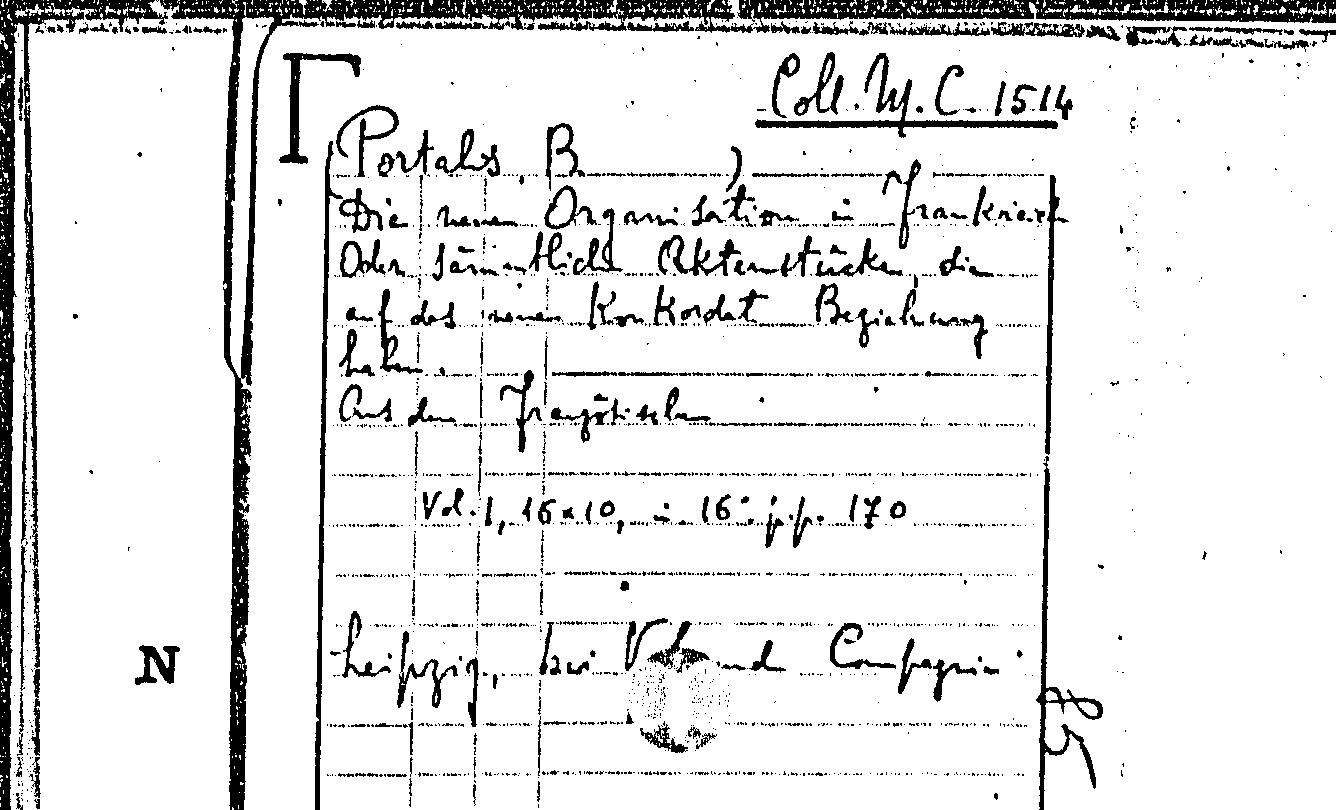 Coll. M. C. 1514
Portalis, B. )
Die neuen Organisation in Frankreich
Oder sämmtliche Aktenstücke, die
auf das neuen Konkordat Beziehung
haben.
Aus dem Französischen
Vol. 1, 16 x 10, in 16° p.p. 170
Leipzig, bei und Compagnie
N